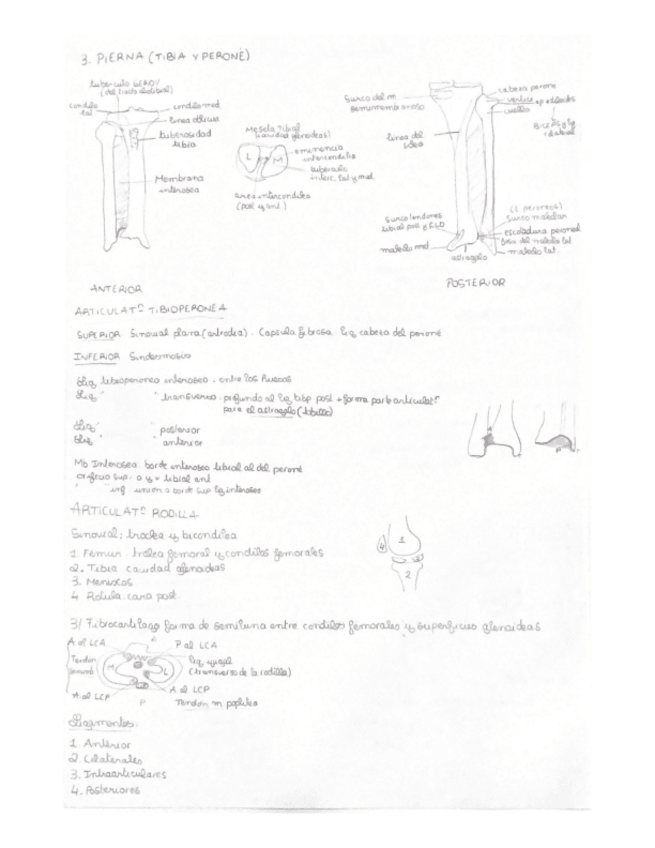 3. PIERNA (TIBIA Y PERONÉ)
tubérculo GERDY
(del tracto iliotibial)
condilo
lat.
condilo med
linea oblicua
tuberosidad
tibia
Membrana
interosea
Meseta Tibial
(cavidad glenoidea)
L
M
eminencia
intercondilea
tuberculo
interc. lat y med.
area intercondilea
(post y ant.)
Surco del m
semimembranoso
linea del
sóleo
cabeza peroné
vertice
cuello
Surco tendones
tibial post y FLD
maleolo med
astragalo
(L peroneos)
Surco maleolar
escotadura peroneal
maleolo lat.
ANTERIOR
POSTERIOR
ARTICULATº TIBIOPERONEA
SUPERIOR Sinovial plana (artrodia). Capsula fibrosa. lig cabeza del peroné
INFERIOR Sindesmosis
lig tibioperoneo interoseo. entre los huesos
lig " " transverso. profundo al lig tibp post + forma parte articulatº
para el astragalo (tobillo)
lig " " posterior
lig " " anterior
Mb Interosea: borde interoseo tibial al del peroné
orificio sup: a y v tibial ant
" inf union a borde sup lig interoseo
ARTICULATº RODILLA
Sinovial; troclea y bicondilea
1. Femur: troclea femoral y condilos femorales
2. Tibia: cavidad glenoideas
3. Meniscos
4. Rotula: cara post.
1
4
2
3/ Fibrocartilago forma de semiluna entre condilos femorales y superficies glenoideas
A al LCA
A
P al LCA
Tendon
M
L
lig yugal
(transverso de la rodilla)
A al LCP
P
A al LCP
Tendon m popliteo
Ligamentos:
1. Anterior
2. Colaterales
3. Intraarticulares
4. Posteriores